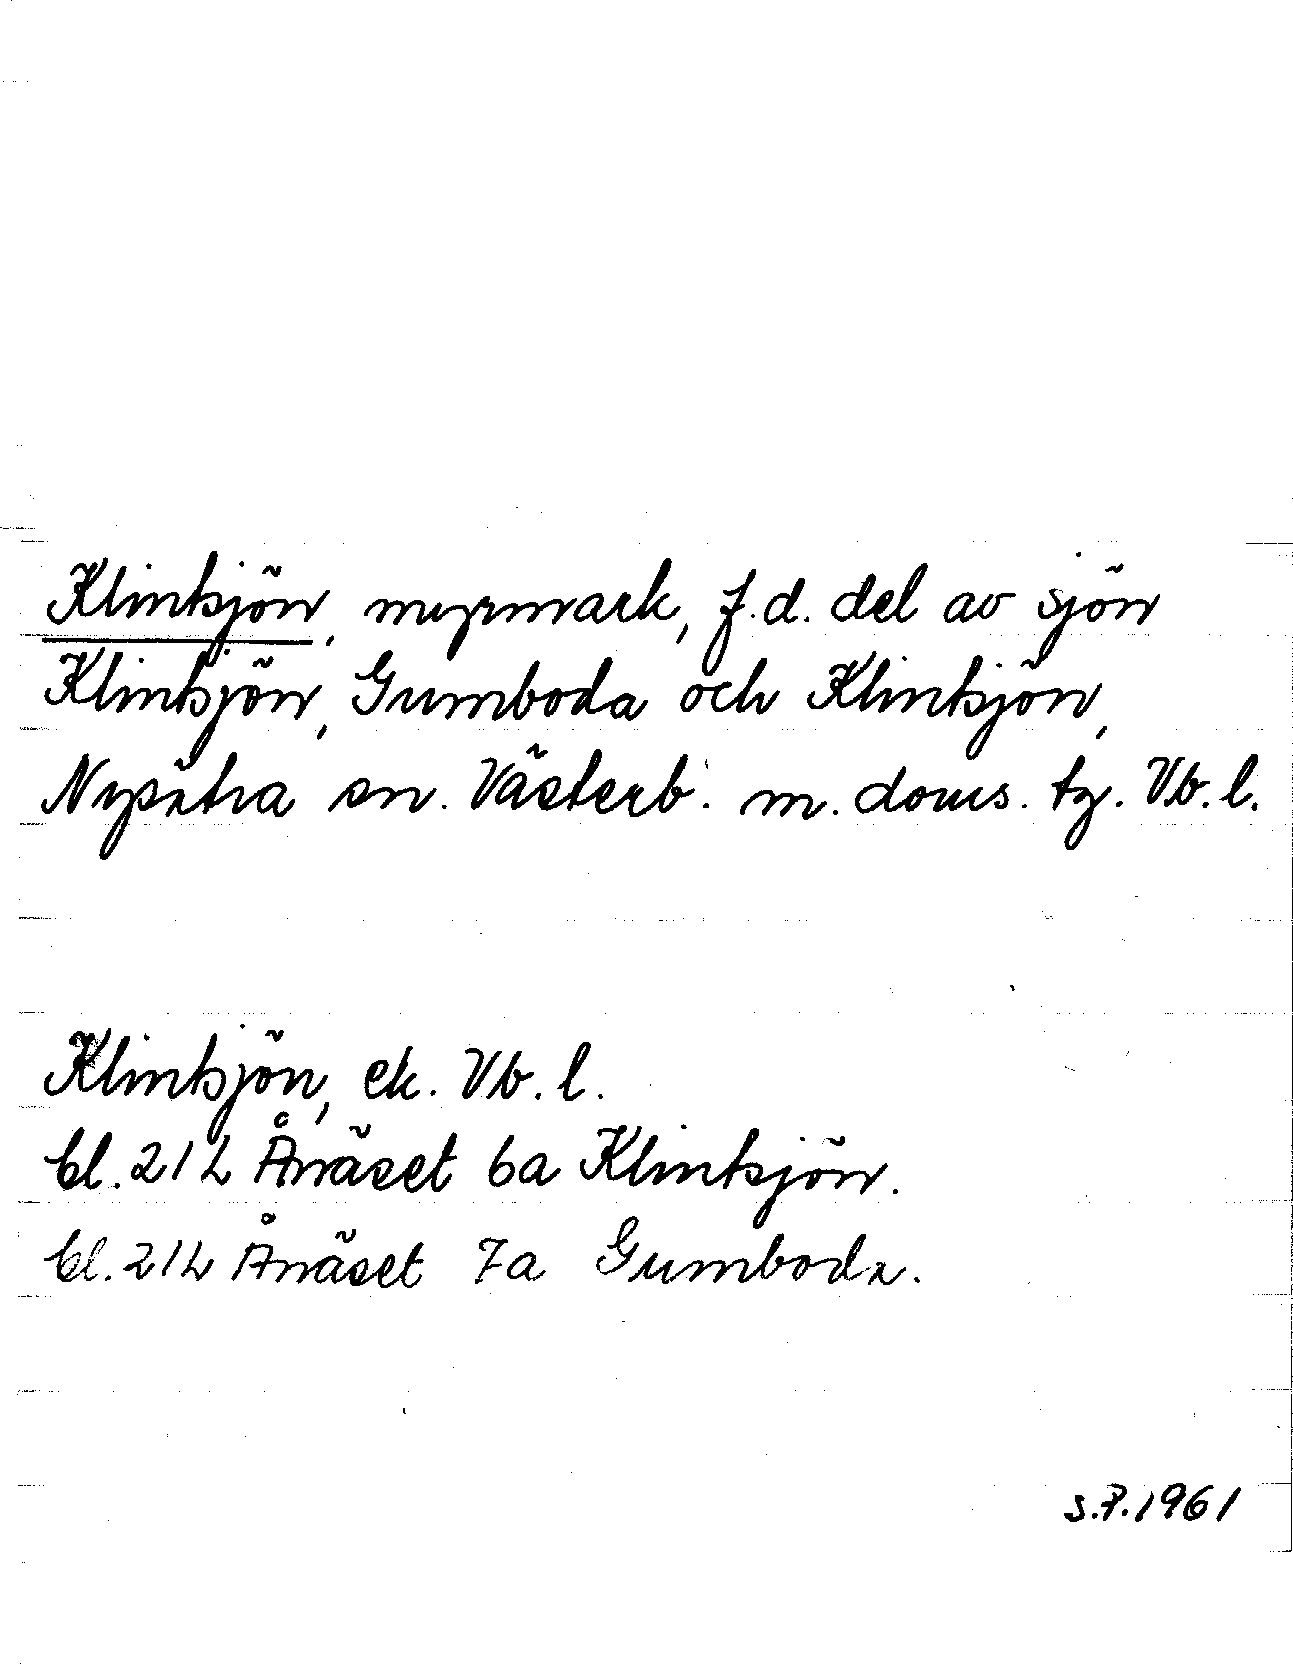 Klintsjön, myrmark, f.d. del av sjön
Klintsjön, Gumboda och Klintsjön,
Nysätra sn. Västerb. m. doms. tg. Vb. l.
Klintsjön, ek. Vb. l.
bl. 21L Ånäset 6a Klintsjön.
bl. 21L Ånäset 7a Gumboda.
S.P. 1961